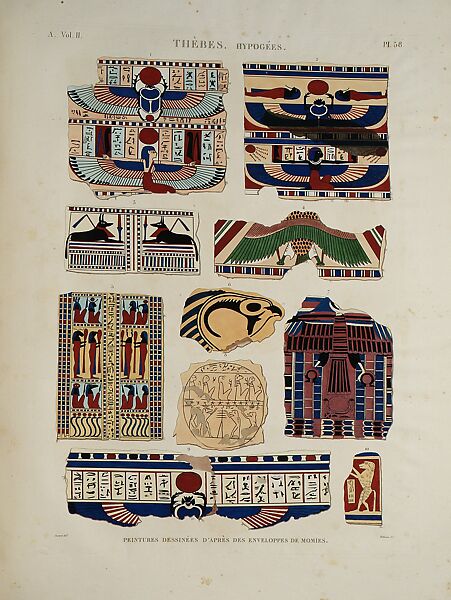 A. Vol. II.
THÈBES. HYPOGÉES.
Pl. 58
1
2
3
4
5
6
7
9
10
PEINTURES DESSINÉES D'APRÈS DES ENVELOPPES DE MOMIES.